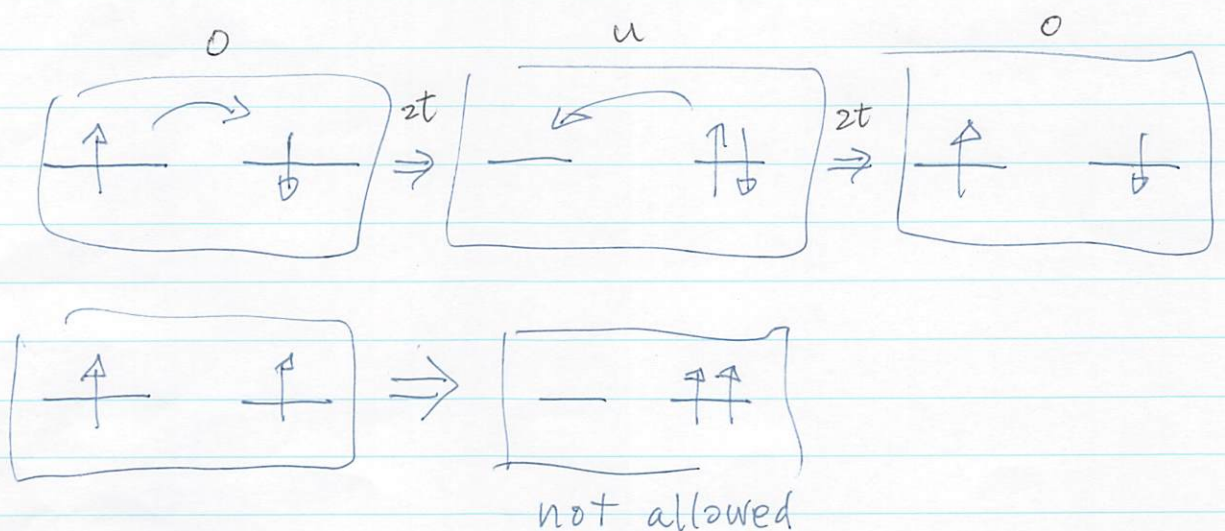 0 u 0
2t 2t
not allowed